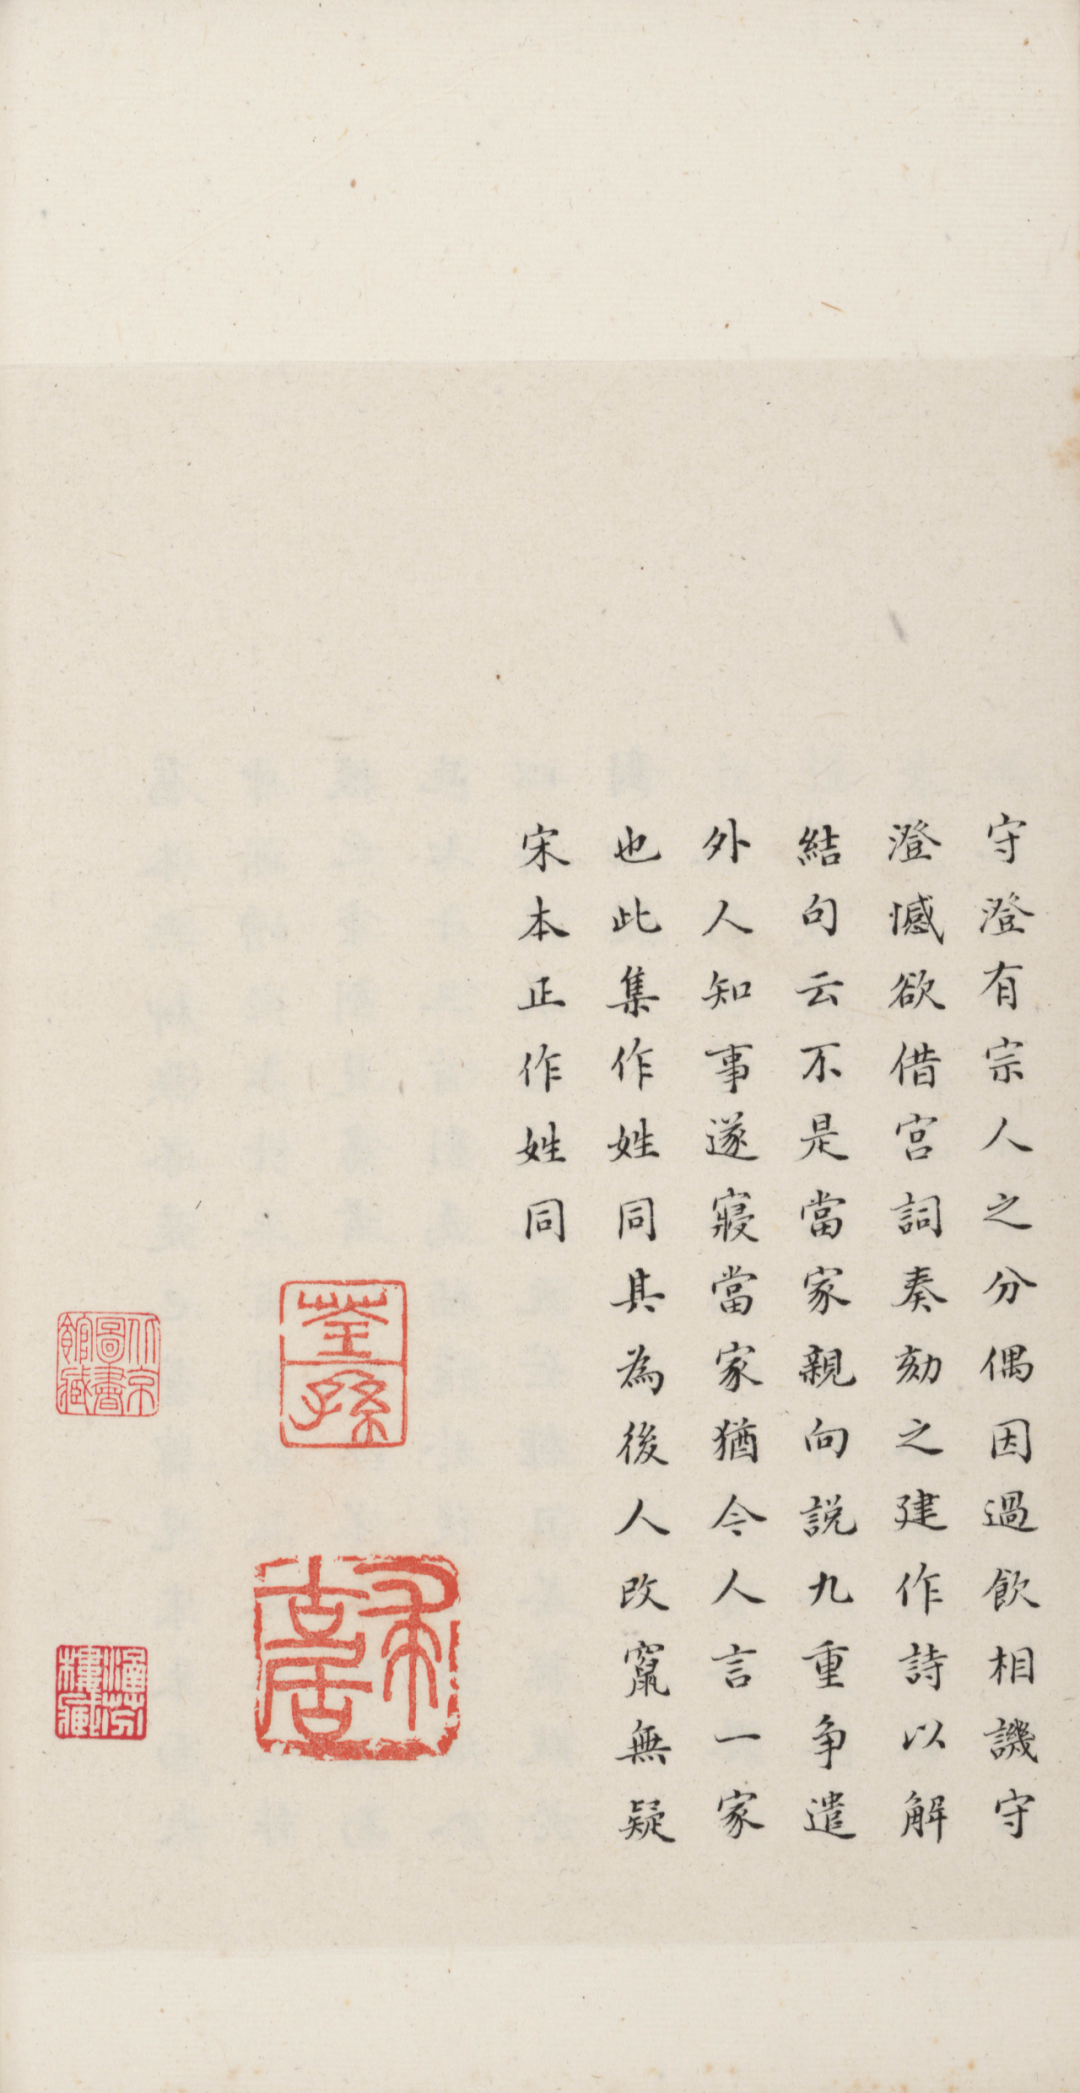 守澄有宗人之分偶因過飲相譏守
澄憾欲借宮詞奏劾之建作詩以解
結句云不是當家親向説九重争遣
外人知事遂寢當家猶今人言一家
也此集作姓同其為後人改竄無疑
宋本正作姓同
荛孫
北京圖書館藏
涵芬樓藏